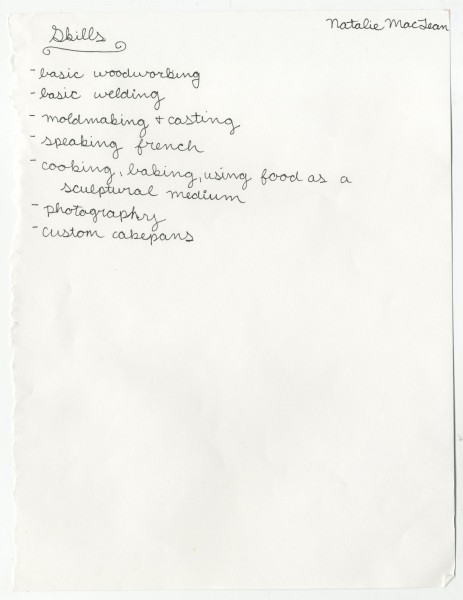 Natalie MacLean
Skills
- basic woodworking
- basic welding
- moldmaking + casting
- speaking french
- cooking, baking, using food as a
sculptural medium
- photography
- custom cakepans